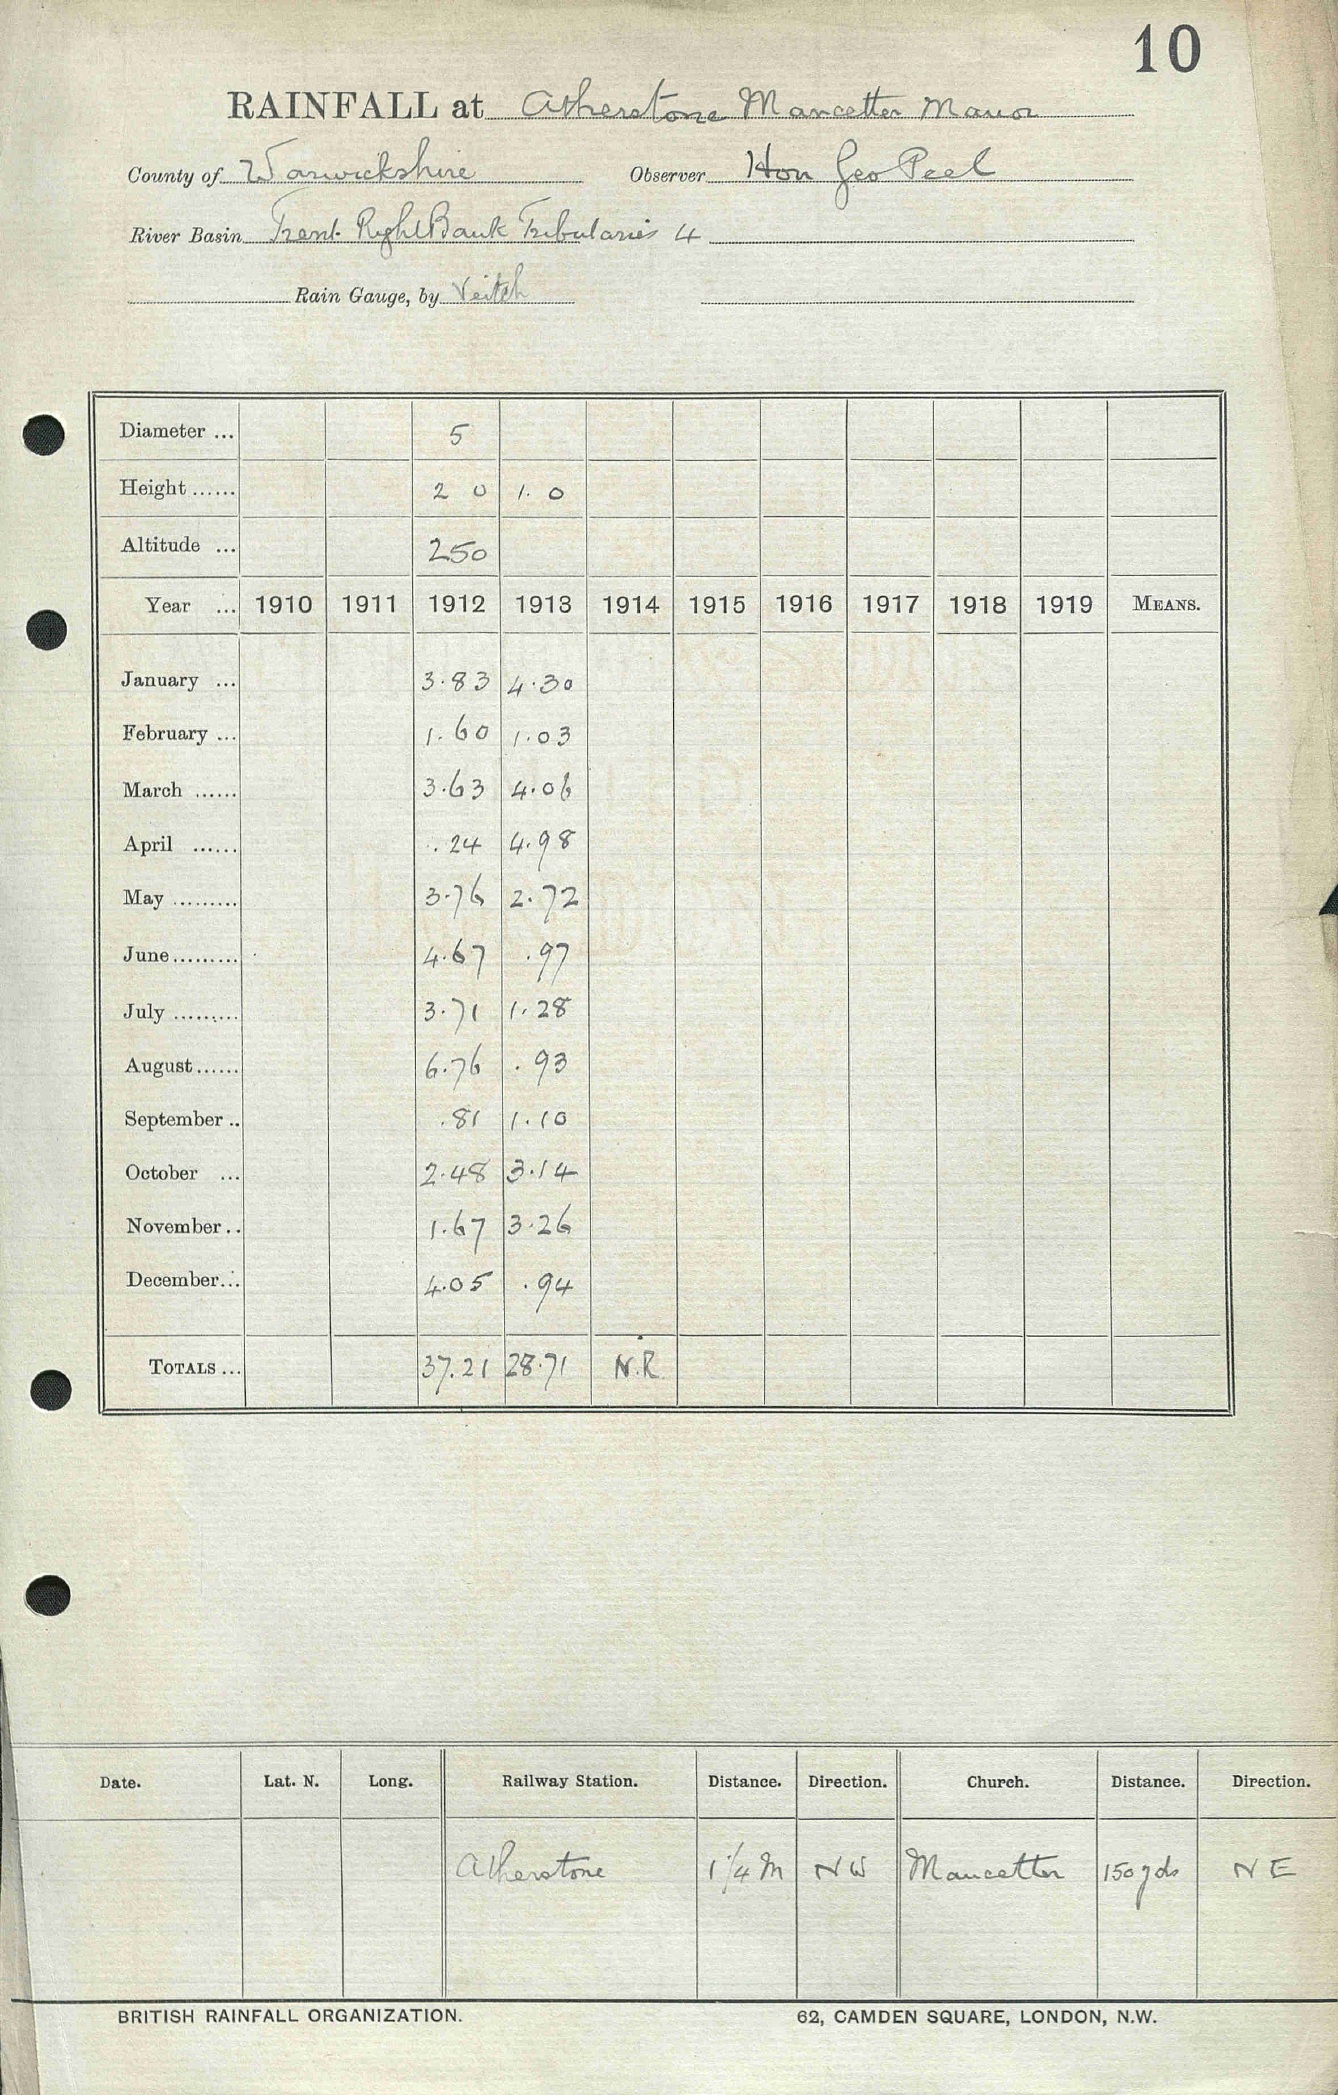 10
RAINFALL at Atherstone Mancetter Manor
County of Warwickshire Observer Hon Geo Peel
River Basin Trent Right Bank Tributaries 4
Rain Gauge, by Veitch
Diameter ... 5
Height ...... 2 0 1. 0
Altitude ... 250
Year ... 1910 1911 1912 1913 1914 1915 1916 1917 1918 1919 MEANS.
January ... 3.83 4.30
February ... 1.60 1.03
March ...... 3.63 4.06
April ...... .24 4.98
May ......... 3.76 2.72
June ......... 4.67 .97
July ......... 3.71 1.28
August ...... 6.76 .93
September .. .81 1.10
October ... 2.48 3.14
November .. 1.67 3.26
December ... 4.05 .94
TOTALS ... 37.21 28.71 N.R.
Date. Lat. N. Long. Railway Station. Distance. Direction. Church. Distance. Direction.
Atherstone 1 1/4 M NW Mancetter 150 yds NE
BRITISH RAINFALL ORGANIZATION. 62, CAMDEN SQUARE, LONDON, N.W.